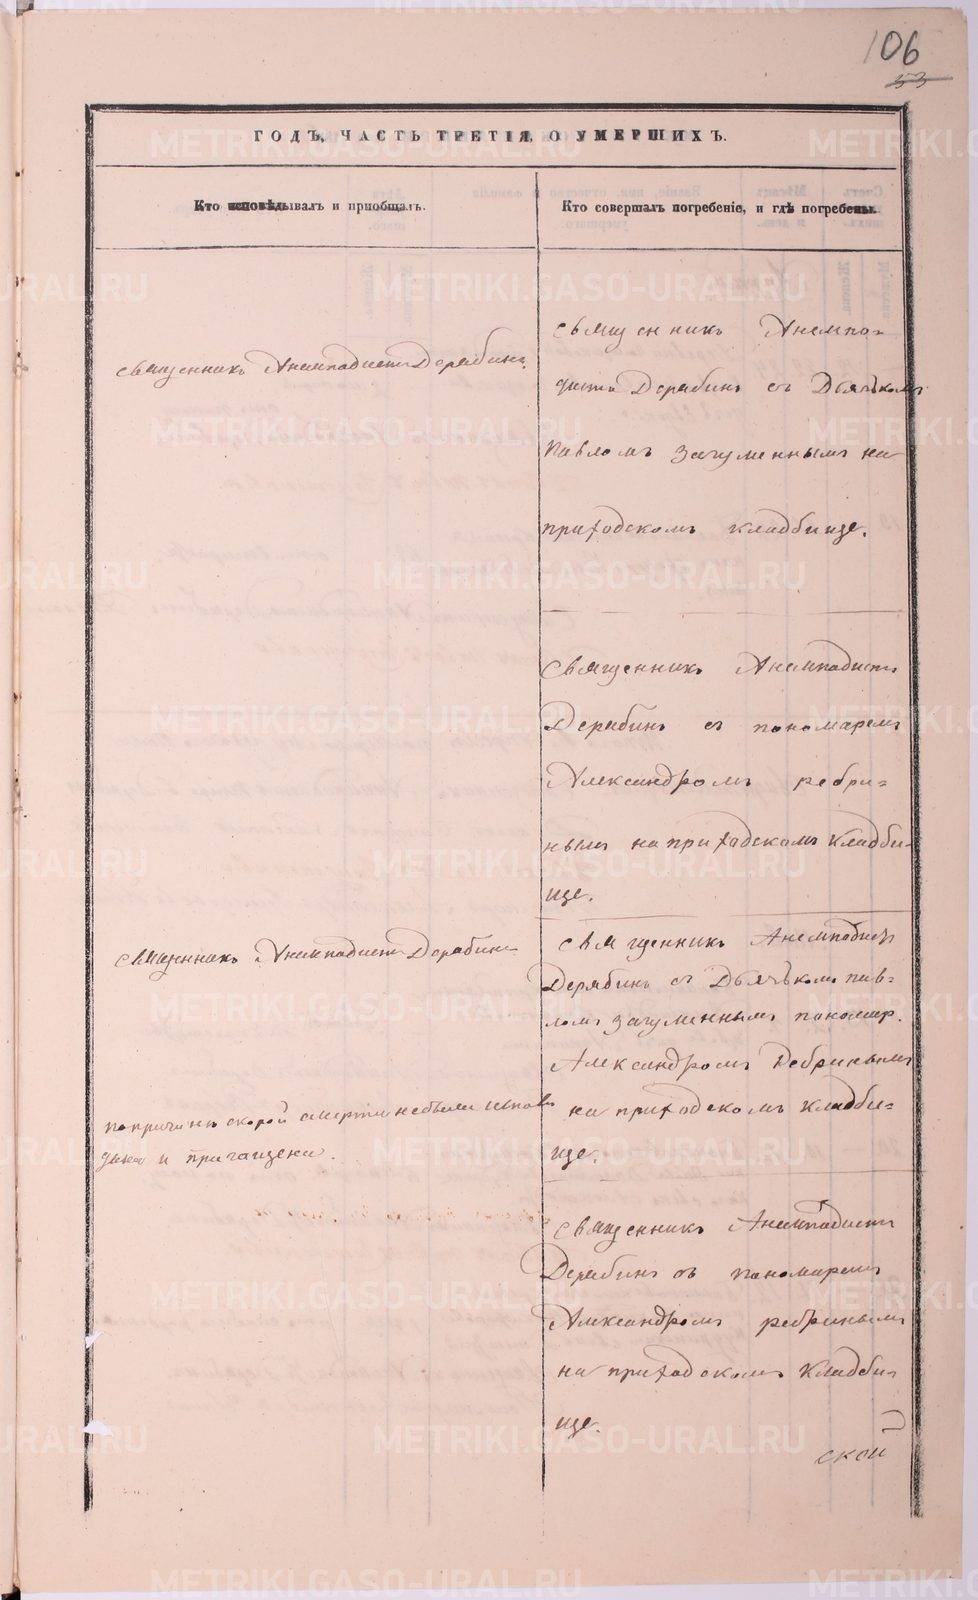 106
53
ГОДЪ, ЧАСТЬ ТРЕТІЯ, О УМЕРШИХЪ.
Кто исповѣдывалъ и пріобщалъ.
Кто совершалъ погребеніе, и гдѣ погребены.
священникъ Анемподистъ Дерябинъ.
священникъ Анемпо=
дистъ Дерябинъ съ Дьячькомъ
павломъ Загуменнымъ на
приходскомъ кладбище.
Священникъ Анемподистъ
Дерябинъ съ пономаремъ
Александромъ ребри=
нымъ на приходскомъ кладби=
ще.
священникъ Анемподистъ Дерябинъ
священникъ Анемподистъ
Дерябинъ съ Дьячькомъ пав=
ломъ Загуменнымъ пономар.
Александромъ Ребринымъ
на приходскомъ кладби=
ще.
по причинѣ скорой смерти небыли исповѣ
даны и причащены.
священникъ Анемподистъ
Дерябинъ съ пономаремъ
Александромъ ребринымъ
на приходскомъ кладби=
ще.
ской
METRIKI.GASO-URAL.RU